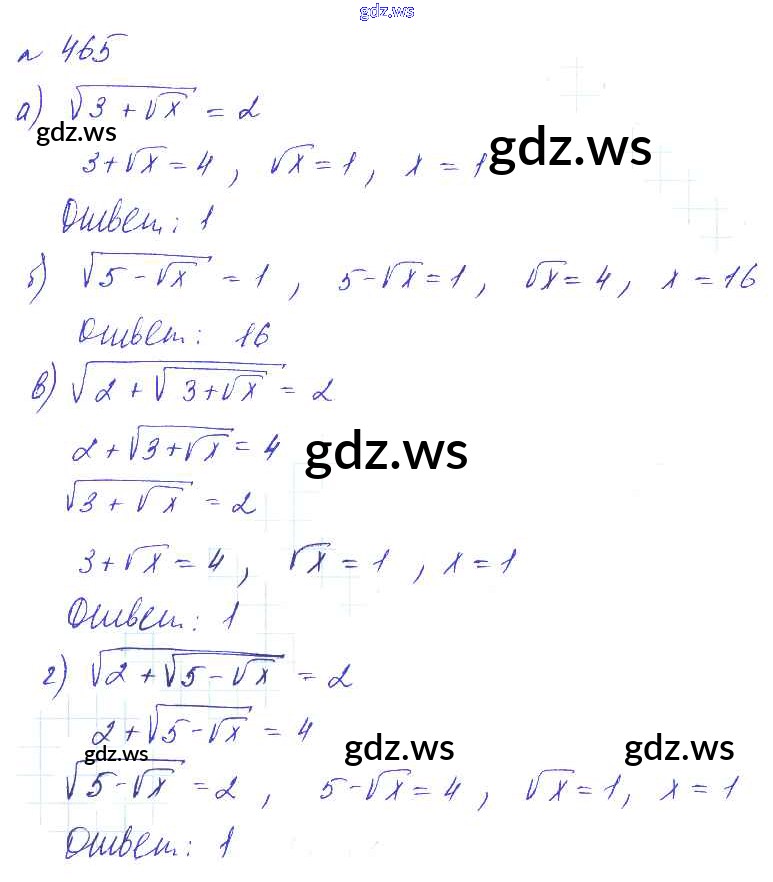 gdz.ws
№ 465
а) √(3 + √x) = 2
gdz.ws
gdz.ws
3 + √x = 4, √x = 1, x = 1
Ответ: 1
б) √(5 - √x) = 1, 5 - √x = 1, √x = 4, x = 16
Ответ: 16
в) √(2 + √(3 + √x)) = 2
2 + √(3 + √x) = 4
gdz.ws
√(3 + √x) = 2
3 + √x = 4, √x = 1, x = 1
Ответ: 1
г) √(2 + √(5 - √x)) = 2
2 + √(5 - √x) = 4
gdz.ws gdz.ws gdz.ws
√(5 - √x) = 2, 5 - √x = 4, √x = 1, x = 1
Ответ: 1